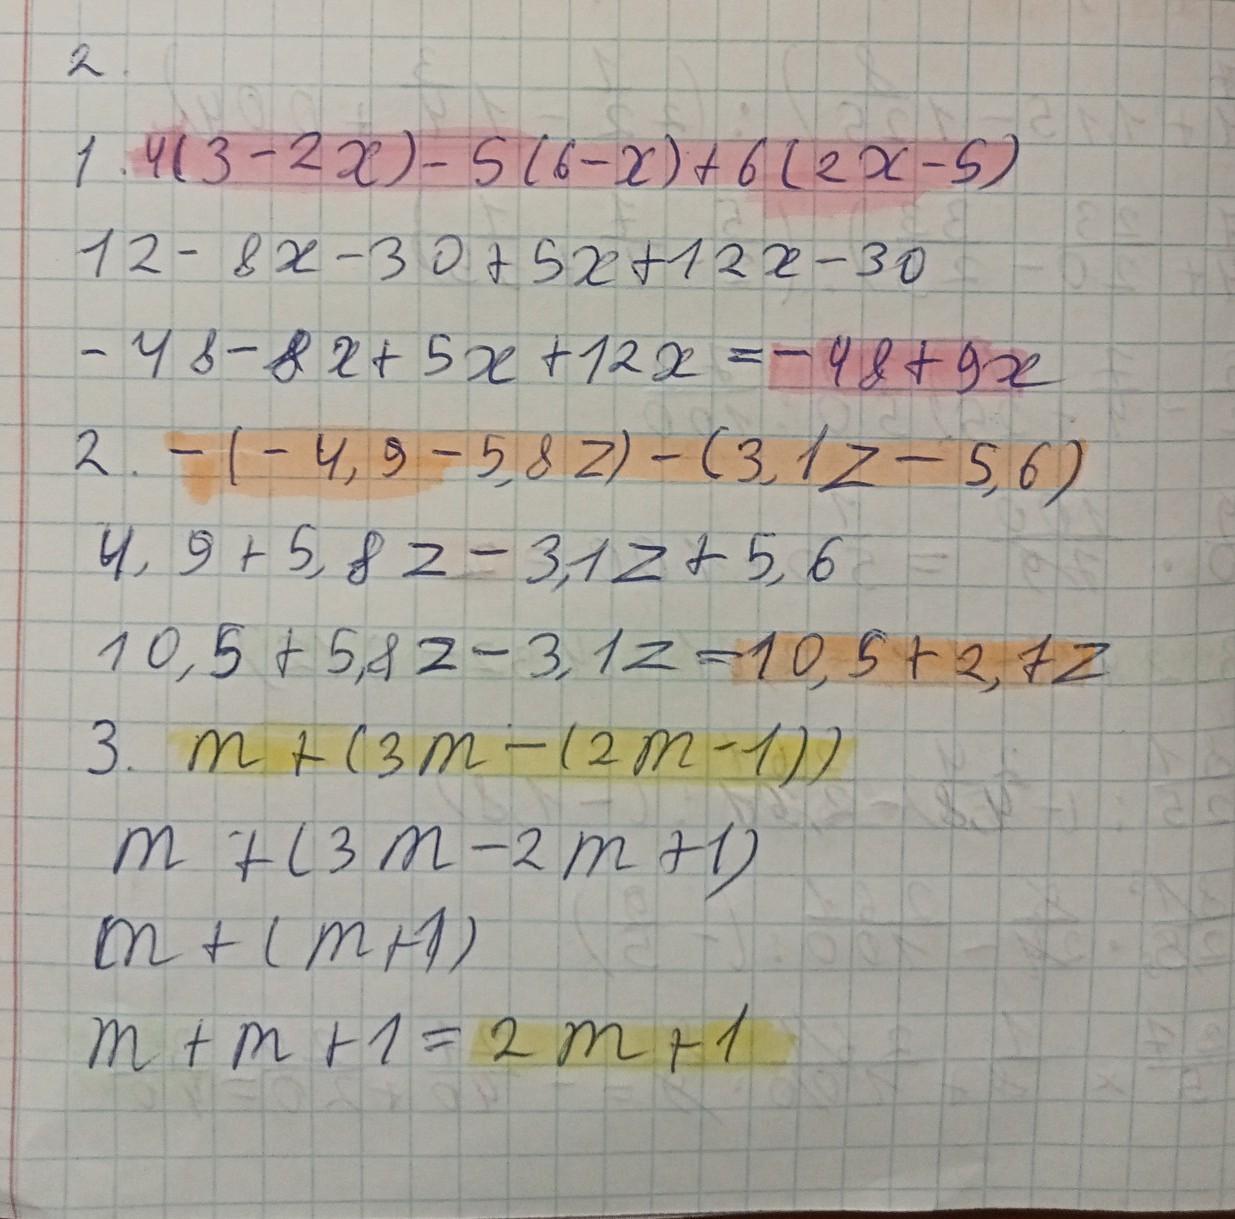 2.
1. 4(3-2x)-5(6-x)+6(2x-5)
12-8x-30+5x+12x-30
-48-8x+5x+12x=-48+9x
2. -(-4,9-5,8z)-(3,1z-5,6)
4,9+5,8z-3,1z+5,6
10,5+5,8z-3,1z=10,5+2,7z
3. m+(3m-(2m-1))
m+(3m-2m+1)
m+(m+1)
m+m+1=2m+1